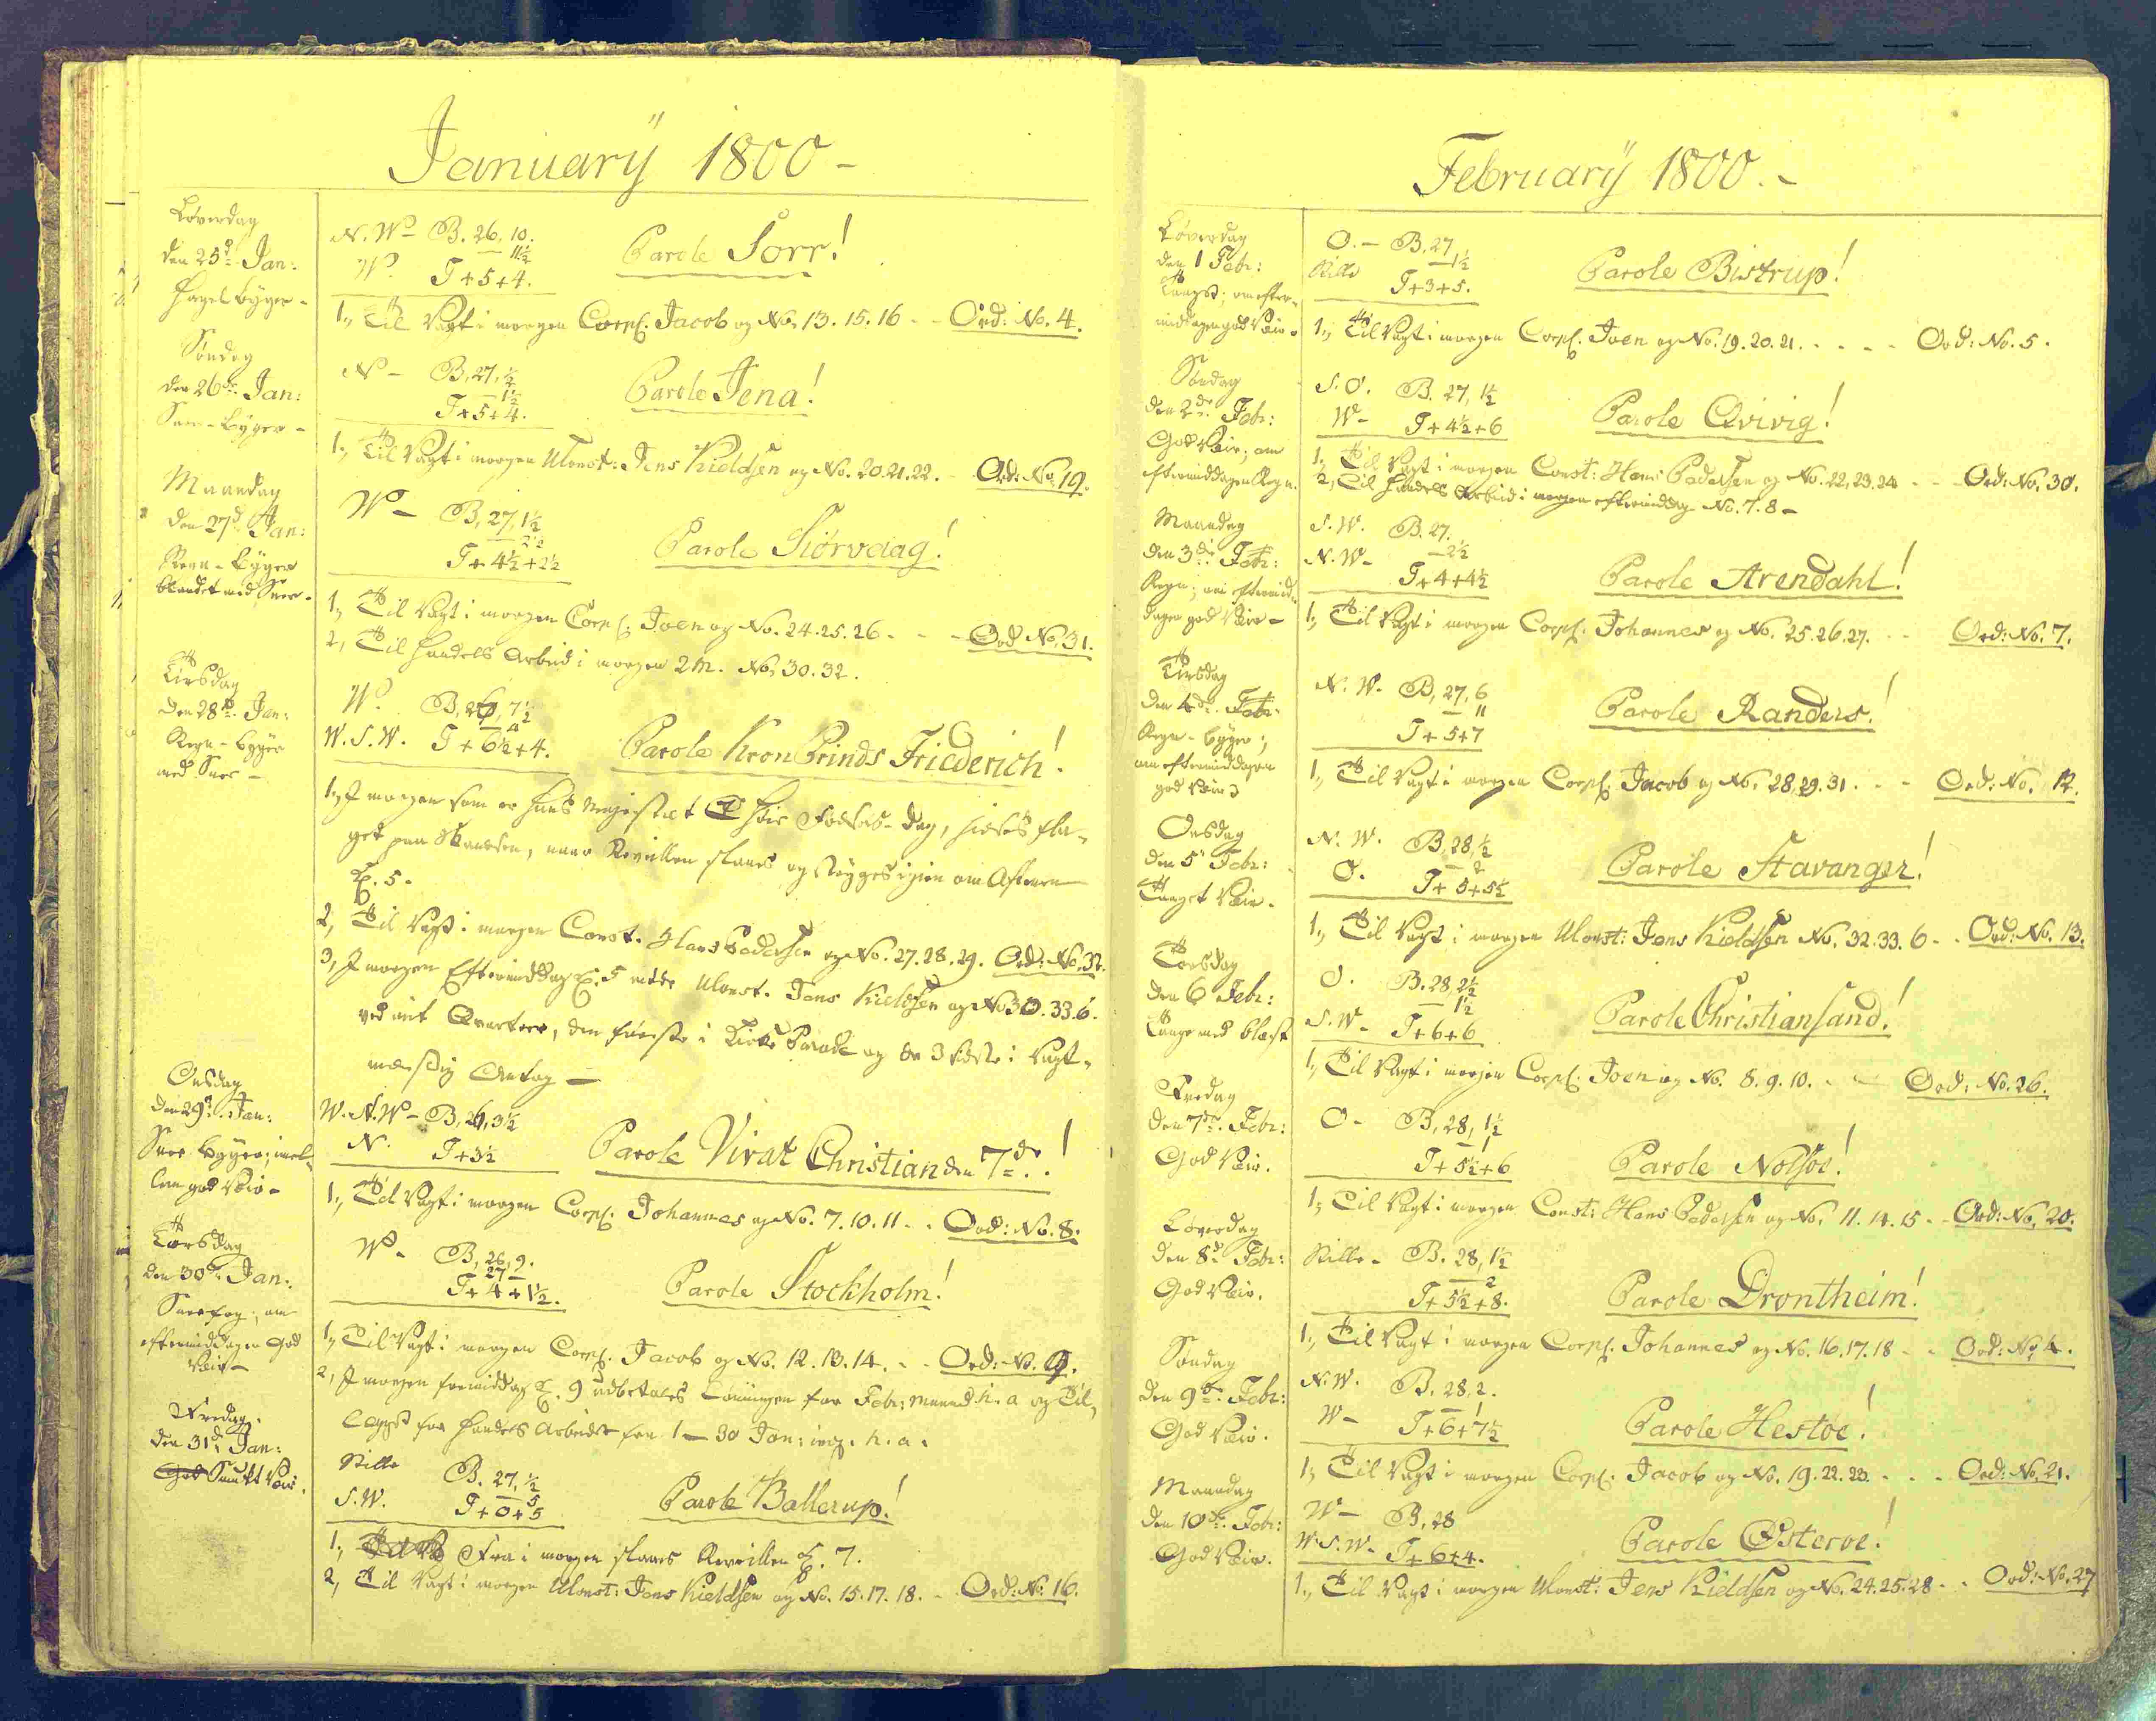 Januarÿ 1800 -
Løverdag
den 25d. Jan:
Hagel Byger -
N. W - B. 26, 10.
— 11½
W. T + 5 + 4.
Parole Sorr!
1., Til Vagt i morgen Corpl. Jacob og No. 13. 15. 16 - - Ord: No. 4.
Søndag
den 26de. Jan:
Snee-Byger -
N - B, 27, ½
— 1½
T + 5 + 4.
Parole Jena!
1., Til Vagt i morgen UConst: Jens Kieldsen og No. 20. 21. 22. - Ord: No. 19.
Maandag
den 27d. Jan:
Regn-Byger
blandet med Snee -
W - B, 27, 1½
— 2½
T + 4½ + 2½
Parole Siørvaag!
1., Til Vagt i morgen Corpl. Joen og No. 24. 25. 26 - - - Ord No. 31.
2, Til Handels Arbeid i morgen 2 M. No. 30. 32.
Tirsdag
den 28d. Jan:
Regn-Byger
med Snee -
W. B, 26, 7½
W. S. W. T + 6½ + 4.
Parole Kron Prinds Friederich!
1., I morgen som er Hans Majestæt Høie Fødsels-Dag, heises Fla-
get paa Skandsen, naar Reveillen slaaes og stryges igien om Aftenen
Kl. 5.
2, Til Vagt i morgen Const. Hans Pedersen og No. 27. 28. 29. Ord: No. 32.
3, I morgen Eftermiddag Kl. 5 møder UConst. Jens Kieldsen og No 30. 33. 6.
ved mit Qvarteer, den første i Kirke Parade og de 3 sidste i Vagt-
mæssig Antog -
Onsdag
den 29d. Jan:
Snee Byger; imel-
lem god Veir -
W. N. W - B, 26, 3½
N. T + 3½
Parole Vivat Christian den 7de.!
1., Til Vagt i morgen Corpl. Johannes og No. 7. 10. 11 - . Ord: No. 8.
Torsdag
den 30d. Jan:
Sneefog; om
eftermiddagen God
Veir -
W - B, 26, 9.
27 —
T + 4 + 1½.
Parole Stockholm!
1., Til Vagt i morgen Corpl. Jacob og No. 12. 13. 14. - - Ord: No. 9.
2, I morgen formiddag Kl. 9 udbetales Lønningen for Febr: Maaned h. a og Til-
lægget for Handels Arbeidet fra 1 — 30 Jan: incl. h. a.
Fredag
den 31d. Jan:
God Smukt Veir.
Stille B. 27, ½
— 5
S. W. T + 0 + 5
Parole Ballerup!
1., Fra i morgen slaaes Reveillen Kl. 7.
2, Til Vagt i morgen UConst: Jens Kieldsen og No. 15. 17. 18. - Ord: No. 16.
Februarÿ 1800. -
Løverdag
den 1 Febr:
Taaget; om efter-
middagen god Veir.
O. - B. 27
— 1½
Stille T + 3 + 5.
Parole Bistrup!
1., Til Vagt i morgen Corpl. Joen og No. 19. 20. 21. - - - - Ord: No. 5.
Søndag
den 2de. Febr:
God Veir; om
eftermiddagen Regn.
S. O. B. 27, 1½
W - T + 4½ + 6
Parole Qvivig!
1, Til Vagt i morgen Const: Hans Pedersen og No. 22, 23. 24 - - - Ord: No. 30.
2, Til Handels Arbeid i morgen eftermiddag No. 7. 8 -
Maandag
den 3die. Febr:
Regn; om eftermid-
dagen god Veir -
S. W. B. 27.
N. W - — 2½
T + 4 + 4½
Parole Arendahl!
1, Til Vagt i morgen Corpl. Johannes og No. 25. 26. 27. - - Ord: No. 7.
Tirsdag
den 4de. Febr:
Regn-Byger;
om eftermiddagen
god Veir
N. W. B, 27, 6
— 11
T + 5 + 7
Parole Randers!
1, Til Vagt i morgen Corpl. Jacob og No. 28, 29. 31. - - Ord: No. 12.
Onsdag
den 5 Febr:
Taaget Veir.
N. W. B, 28, ½
— 2
O. T + 5 + 5½
Parole Stavanger!
1., Til Vagt i morgen UConst: Jens Kieldsen No. 32. 33. 6 - . Ord: No. 13.
Torsdag
den 6 Febr:
Taage med Blæst
O. B. 28, 2½
— 1½
S. W - T + 6 + 6
Parole Christiansand!
1., Til Vagt i morgen Corpl. Joen og No. 8. 9. 10. - - Ord: No. 26.
Fredag
den 7de. Febr:
God Veir.
O - B, 28, 1½
— 1
T + 5½ + 6
Parole Nolsøe!
1, Til Vagt i morgen Const: Hans Pedersen og No. 11. 14. 15 - Ord: No. 20.
Løverdag
den 8d. Febr:
God Veir.
Stille - B. 28, 1½
— 2
T + 5½ + 8.
Parole Drontheim!
1., Til Vagt i morgen Corpl. Johannes og No. 16. 17. 18 - - Ord: No. 4.
Søndag
den 9de. Febr:
God Veir.
N. W. B. 28, 2.
— 1
W - T + 6 + 7½
Parole Hestøe!
1, Til Vagt i morgen Corpl: Jacob og No. 19. 22. 23. - - - Ord: No. 21.
Maandag
den 10de. Febr:
God Veir.
W - B, 28
W. S. W - T + 6 + 4.
Parole Østerøe!
1., Til Vagt i morgen UConst: Jens Kieldsen og No. 24. 25. 28 - . Ord: No. 27